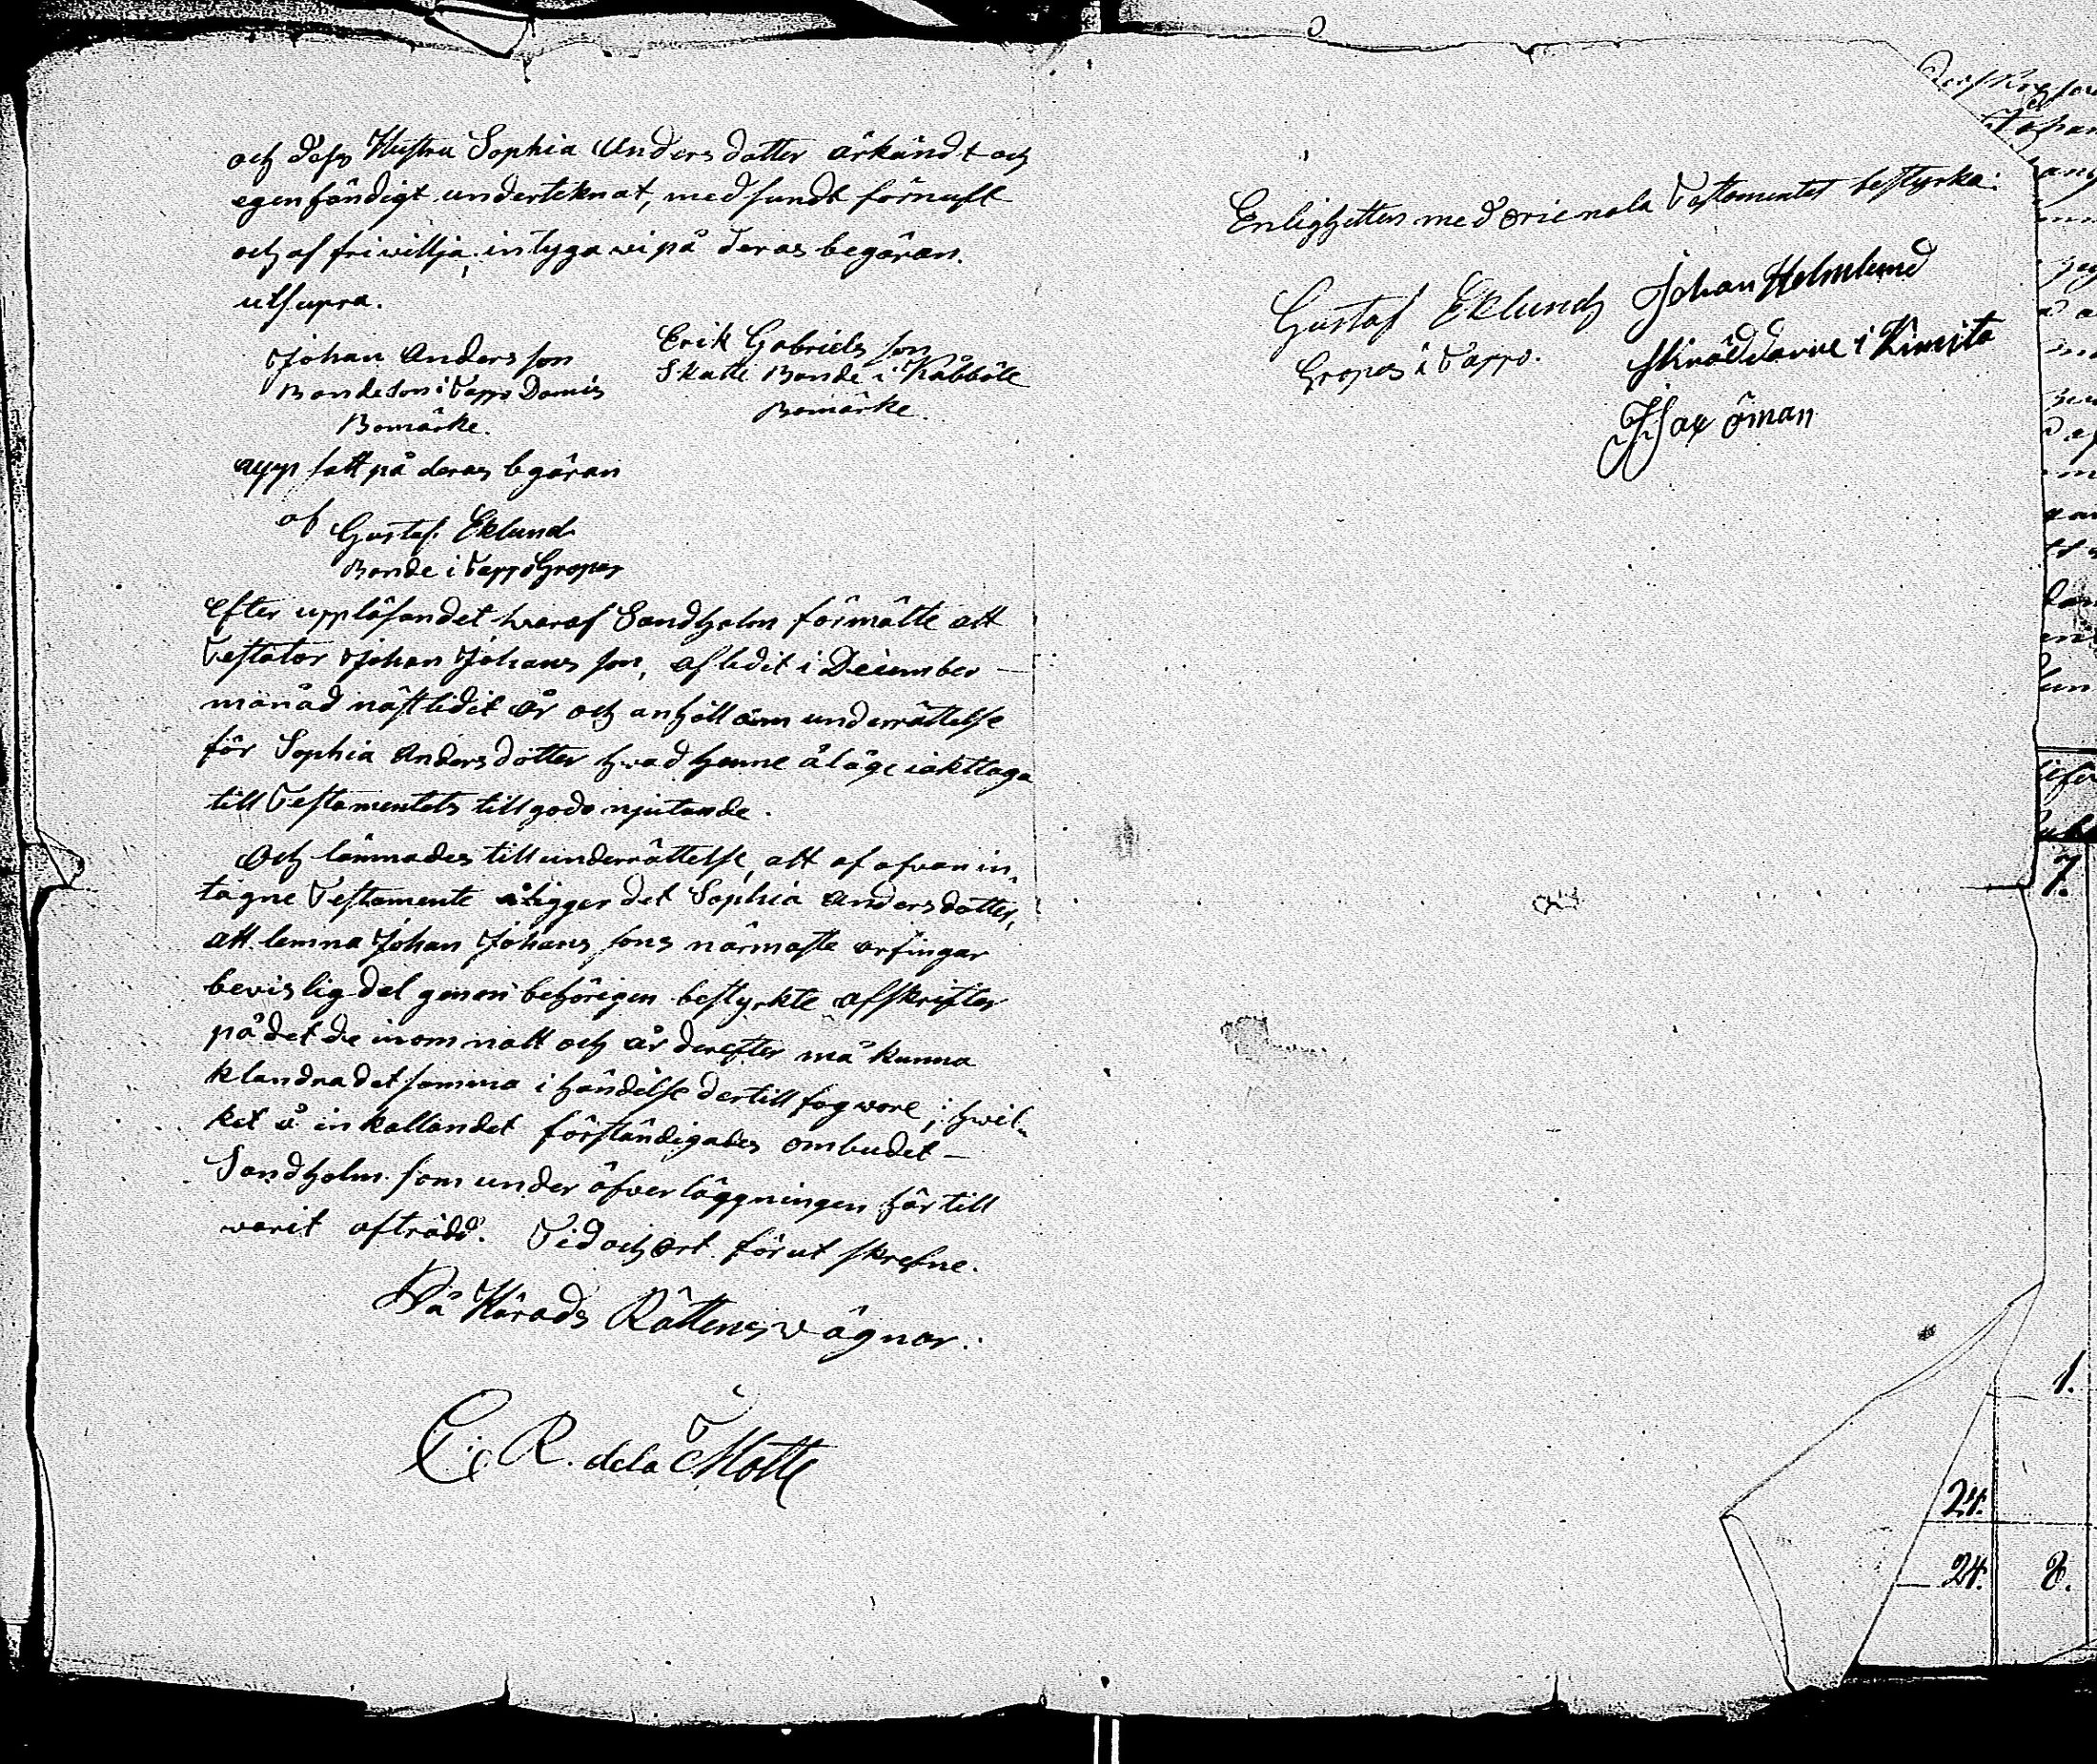 och dess Hustru Sophia Anders dotter ärkändt och
egenhändigt underteknat, med sundt förnuft
och af fri willja, intyga wi på deras begäran.
utsupra.
Johan Anders son
Bondeson i Tappo Damis
Bomärke.
Erik Gabriels son
Skatte Bonde i Kåbböle
Bomärke.
upp satt på deras begäran
af Gustaf Eklund
Bonde i Tappo Gropas
Efter uppläsandet hwaraf Sandholm förmälte att
Testator Johan Johans son, aflidit i December
månad nästlidit år och anhöll om underrättelse
för Sophia Anders dotter hwad henne åläge iakttaga
till Testamentets tillgodo njutande.
Och lämnades till underrättelse, att af ofvan in„
tagne Testamente åligger det Sophia Anders dotter,
att lemna Johan Johans sons närmaste arfingar
bevislig del genom behörigen bestyrkte afskrifter
på det de inom natt och år derefter må kunna
klandra det samma i händelse dertill fog wore; hwil„
ket å inkallandet förständigades ombudet
Sandholm som under öfverläggningen här till
warit afträdd. Tid och Ort förut skrefne.
På Härads Rättens vägnar:
C. R. de la Motte
Enligheten med orienala Testamentet bestyrka:
Gustaf Eklund
Gropas i Tappo.
Johan Holmlund
Skräddare i Kimito
Isax öman
7.
1.
24.
24. 8.